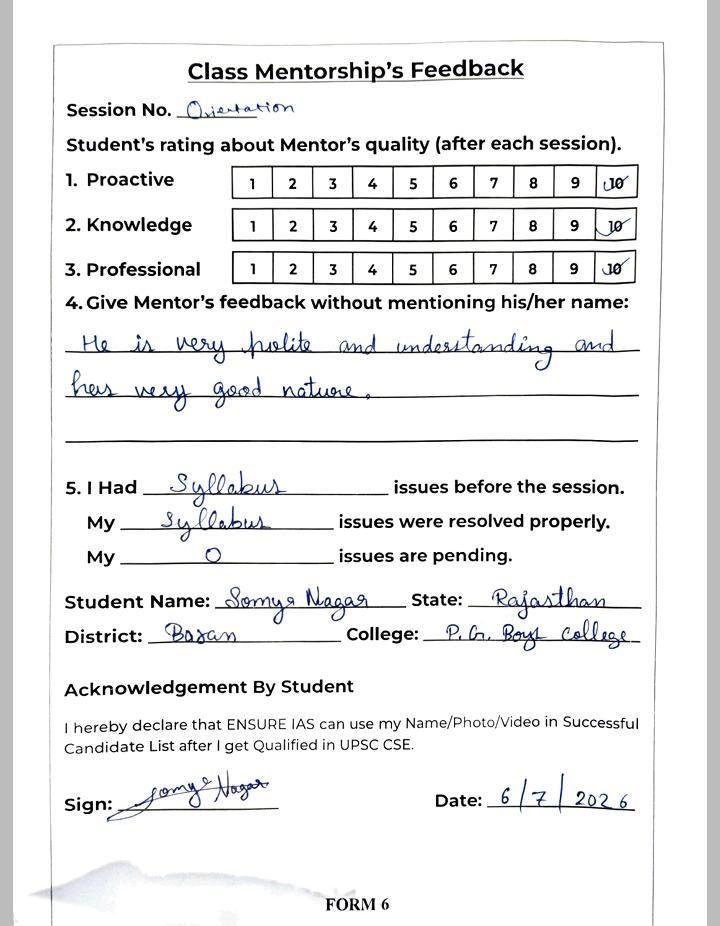 Class Mentorship's Feedback
Session No. Orientation
Student's rating about Mentor's quality (after each session).
1. Proactive 1 2 3 4 5 6 7 8 9 10
2. Knowledge 1 2 3 4 5 6 7 8 9 10
3. Professional 1 2 3 4 5 6 7 8 9 10
4. Give Mentor's feedback without mentioning his/her name:
He is very polite and understanding and
has very good nature.
5. I Had Syllabus issues before the session.
My Syllabus issues were resolved properly.
My 0 issues are pending.
Student Name: Somya Nagar State: Rajasthan
District: Baran College: P. G. Boys College
Acknowledgement By Student
I hereby declare that ENSURE IAS can use my Name/Photo/Video in Successful
Candidate List after I get Qualified in UPSC CSE.
Sign: Somya Nagar Date: 6/7/2026
FORM 6